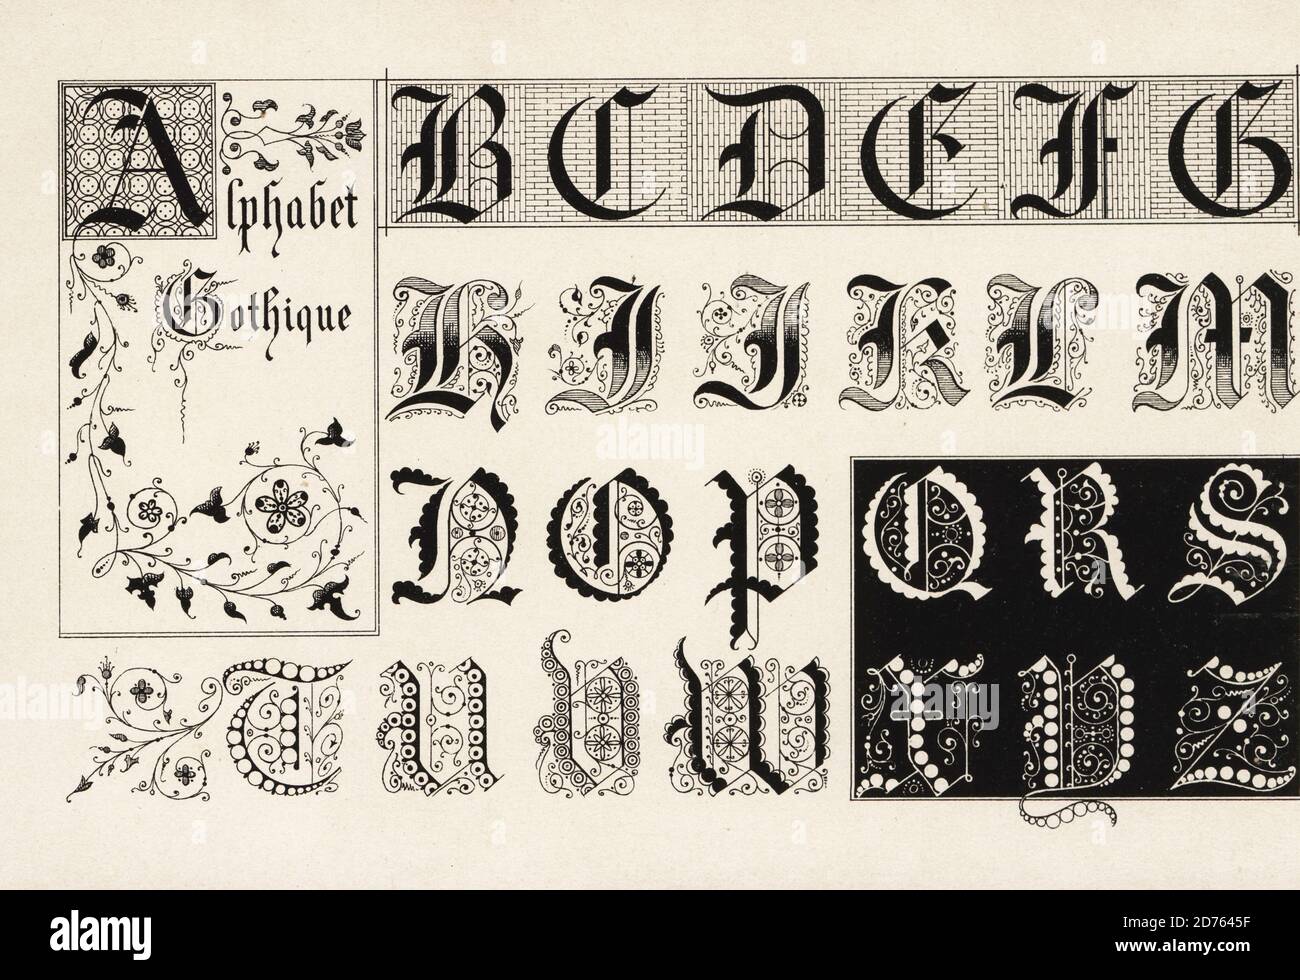 Alphabet
Gothique
B C D E F G
H I J K L M
N O P Q R S
T U V W X Y Z
alamy
Image ID: 2D7645F
www.alamy.com